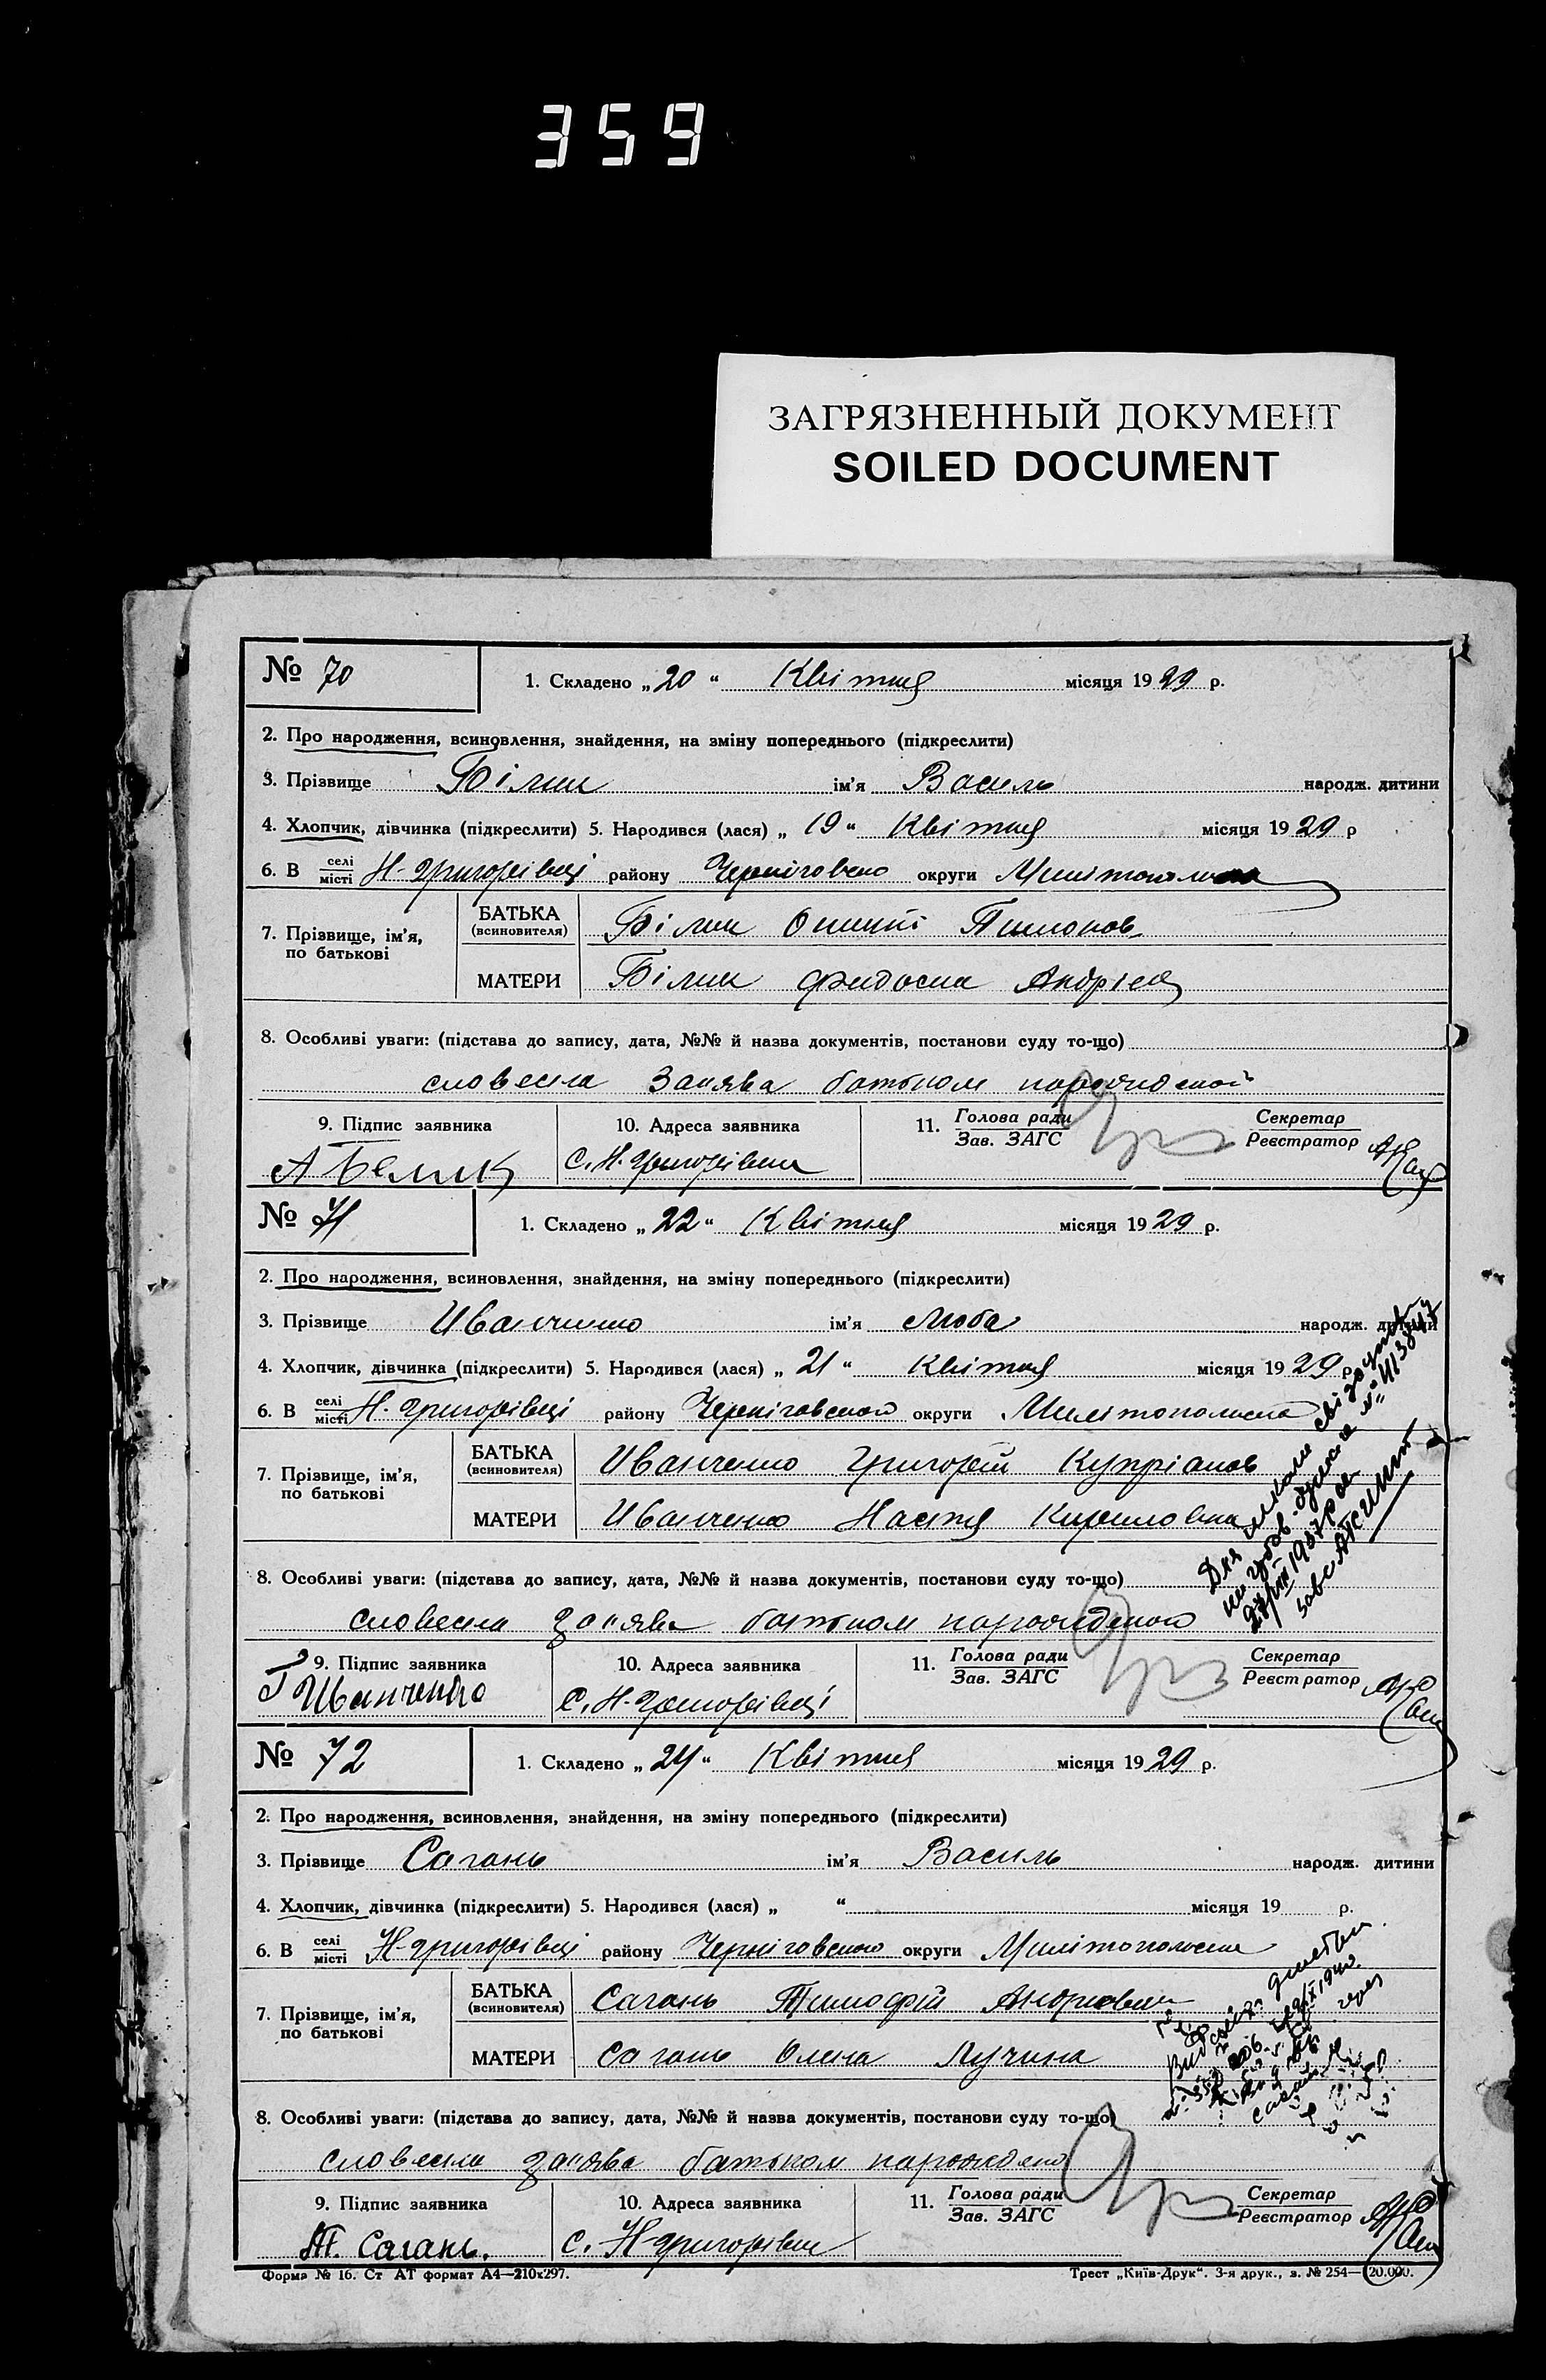 359
ЗАГРЯЗНЕННЫЙ ДОКУМЕНТ
SOILED DOCUMENT
№ 70 1. Складено „20“ Квітня місяця 1929 р.
2. Про народження, всиновлення, знайдення, на зміну попереднього (підкреслити)
3. Прізвище Білик ім'я Василь народж. дитини
4. Хлопчик, дівчинка (підкреслити) 5. Народився (лася) „19“ Квітня місяця 1929 р
6. В селі місті Н-Григорівці району Черніговсько округи Милітопольська
7. Прізвище, ім'я, по батькові
БАТЬКА (всиновителя) Білик Тимонов
МАТЕРИ Білик Федосиа Андрієв
8. Особливі уваги: (підстава до запису, дата, №№ й назва документів, постанови суду то-що)
словесна заява батьком
9. Підпис заявника 10. Адреса заявника 11. Голова ради Зав. ЗАГС Секретар Реєстратор
А Белик С. Н. Григорівка
№ 71 1. Складено „22“ Квітня місяця 1929 р.
2. Про народження, всиновлення, знайдення, на зміну попереднього (підкреслити)
3. Прізвище Иванченко ім'я Люба народж. дитини
4. Хлопчик, дівчинка (підкреслити) 5. Народився (лася) „21“ Квітня місяця 1929 р
6. В селі місті Н-Григорівці району Черніговского округи Милітопольська
7. Прізвище, ім'я, по батькові
БАТЬКА (всиновителя) Иванченко Григорій Купріанов
МАТЕРИ Иванченко Настя Кириловна
8. Особливі уваги: (підстава до запису, дата, №№ й назва документів, постанови суду то-що)
словесна заява батьком
9. Підпис заявника 10. Адреса заявника 11. Голова ради Зав. ЗАГС Секретар Реєстратор
Г Иванченко С. Н-Григорівці
№ 72 1. Складено „24“ Квітня місяця 1929 р.
2. Про народження, всиновлення, знайдення, на зміну попереднього (підкреслити)
3. Прізвище Сагань ім'я Василь народж. дитини
4. Хлопчик, дівчинка (підкреслити) 5. Народився (лася) „ “ місяця 19 р.
6. В селі місті Н-Григорівці району Черніговського округи Милітопольська
7. Прізвище, ім'я, по батькові
БАТЬКА (всиновителя) Сагань Тимофій Андриевич
МАТЕРИ Сагань Олена Лучина
8. Особливі уваги: (підстава до запису, дата, №№ й назва документів, постанови суду то-що)
словесна заява батьком
9. Підпис заявника 10. Адреса заявника 11. Голова ради Зав. ЗАГС Секретар Реєстратор
Т. Сагань. С. Н-Григорівка
Форма № 16. Ст АТ формат А4—210х297. Трест „Київ-Друк“. 3-я друк., з. № 254—20.000.